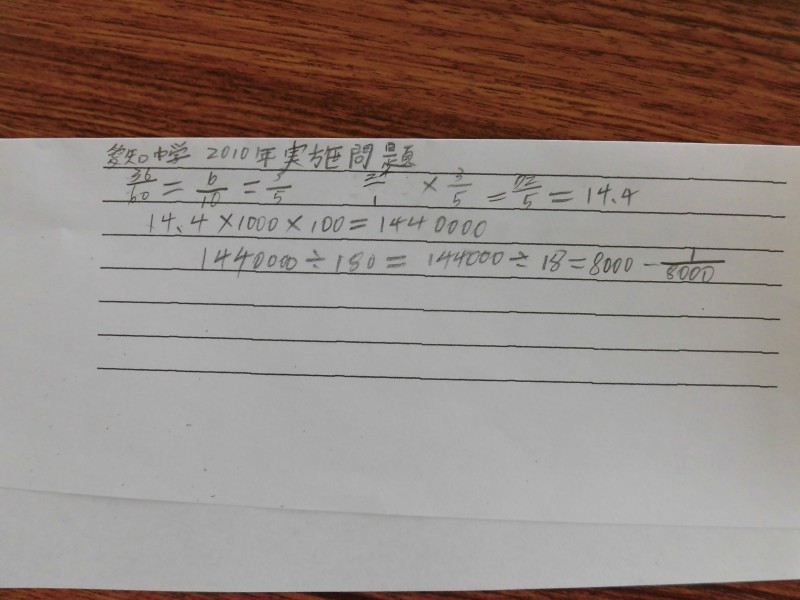 愛知中学 2010年実施問題
36/60 = 6/10 = 3/5 /1 × 3/5 = 72/5 = 14.4
14.4×1000×100=1440000
1440000÷180= 144000÷18=8000-1/8000